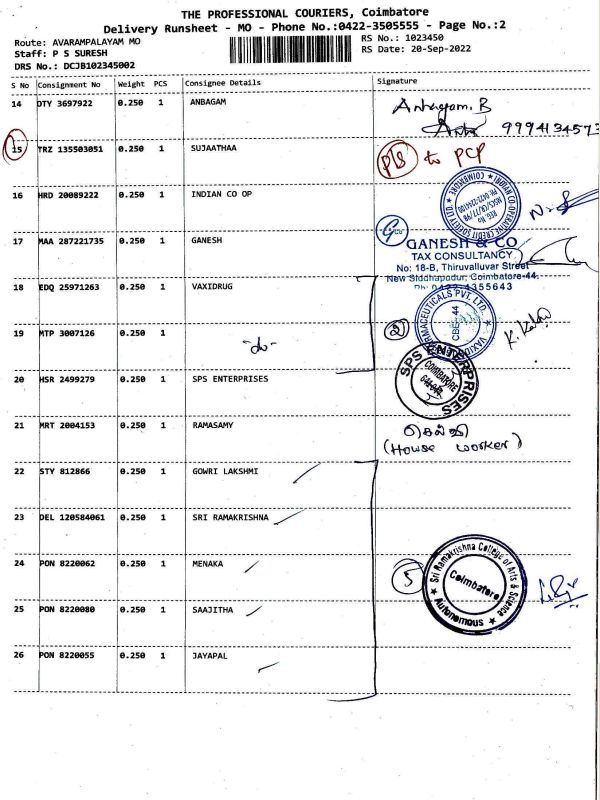 THE PROFESSIONAL COURIERS, Coimbatore
Delivery Runsheet - MO - Phone No.:0422-3505555 - Page No.:2
Route: AVARAMPALAYAM MO
Staff: P S SURESH
DRS No.: DCJB102345002
RS No.: 1023450
RS Date: 20-Sep-2022
S No Consignment No Weight PCS Consignee Details Signature
14 DTY 3697922 0.250 1 ANBAGAM Anbagam. B
9994134573
15 TRZ 135503051 0.250 1 SUJAATHAA to PCP
16 HRD 20089222 0.250 1 INDIAN CO OP
17 MAA 287221735 0.250 1 GANESH GANESH & CO
TAX CONSULTANCY
No: 18-B, Thiruvalluvar Street
New Siddhapudur, Coimbatore-44.
Ph: 0422-4355643
18 EDQ 25971263 0.250 1 VAXIDRUG
CBE - 44
19 MTP 3007126 0.250 1 -do- 2
20 HSR 2499279 0.250 1 SPS ENTERPRISES SPS ENTERPRISES
COIMBATORE
21 MRT 2004153 0.250 1 RAMASAMY செல்வி
(House worker)
22 STY 812866 0.250 1 GOWRI LAKSHMI
23 DEL 120584061 0.250 1 SRI RAMAKRISHNA
24 PON 8220062 0.250 1 MENAKA 5 Sri Ramakrishna College of Arts & Science
Coimbatore
Autonomous
25 PON 8220080 0.250 1 SAAJITHA
26 PON 8220055 0.250 1 JAYAPAL